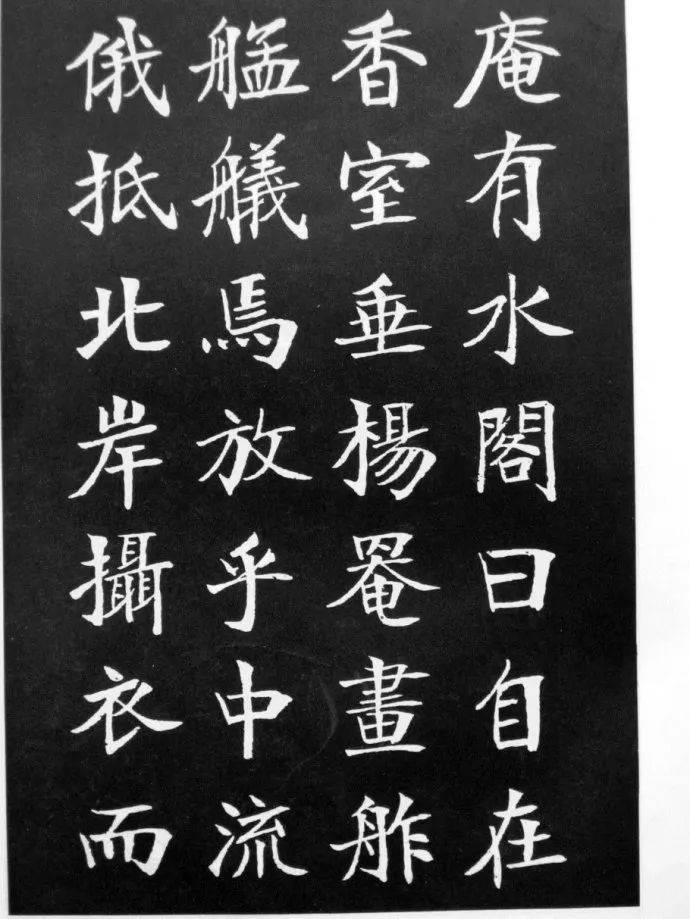 庵有水閣曰自在
香室垂楊罨畫舴
艋艤焉放乎中流
俄抵北岸攝衣而